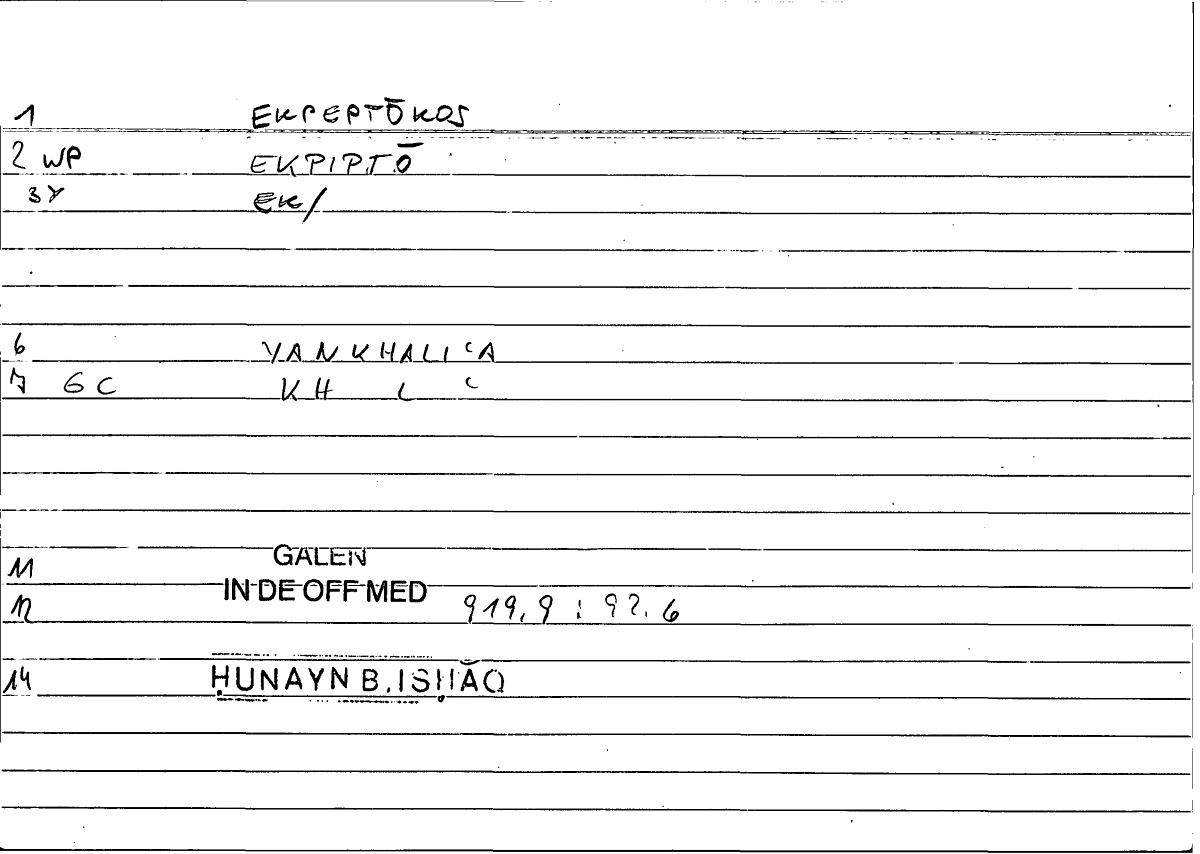 1 EKPEPTŌKOS
2 WP EKPIPTŌ
3Y EK/
6 YANKHALIʿA
7 GC KH L ʿ
11 GALEN
IN DE OFF MED
12 919,9 : 92.6
14 ḤUNAYN B. ISḤĀQ